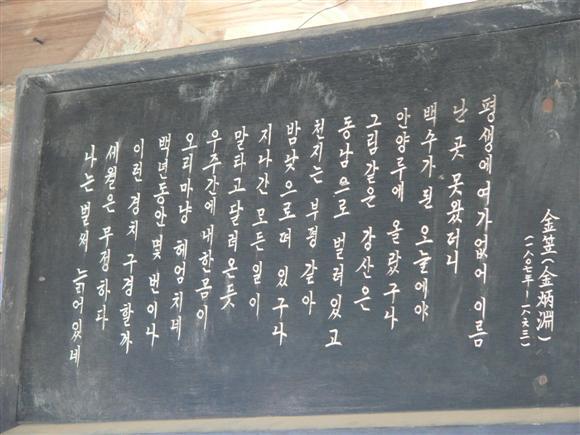 金笠(金炳淵)
(一八〇七年-一八六三)
평생에 여가 없어 이름
난 곳 못왔더니
백수가 된 오늘에야
안양루에 올랐구나
그림같은 강산은
동남으로 벌려있고
천지는 부평같아
밤낮으로떠 있구나
지나간 모든 일이
말타고달려온듯
우주간에 내한몸이
오리마냥 헤엄치네
백년동안 몇 번이나
이런 경치 구경할까
세월은 무정하다
나는 벌써 늙어있네